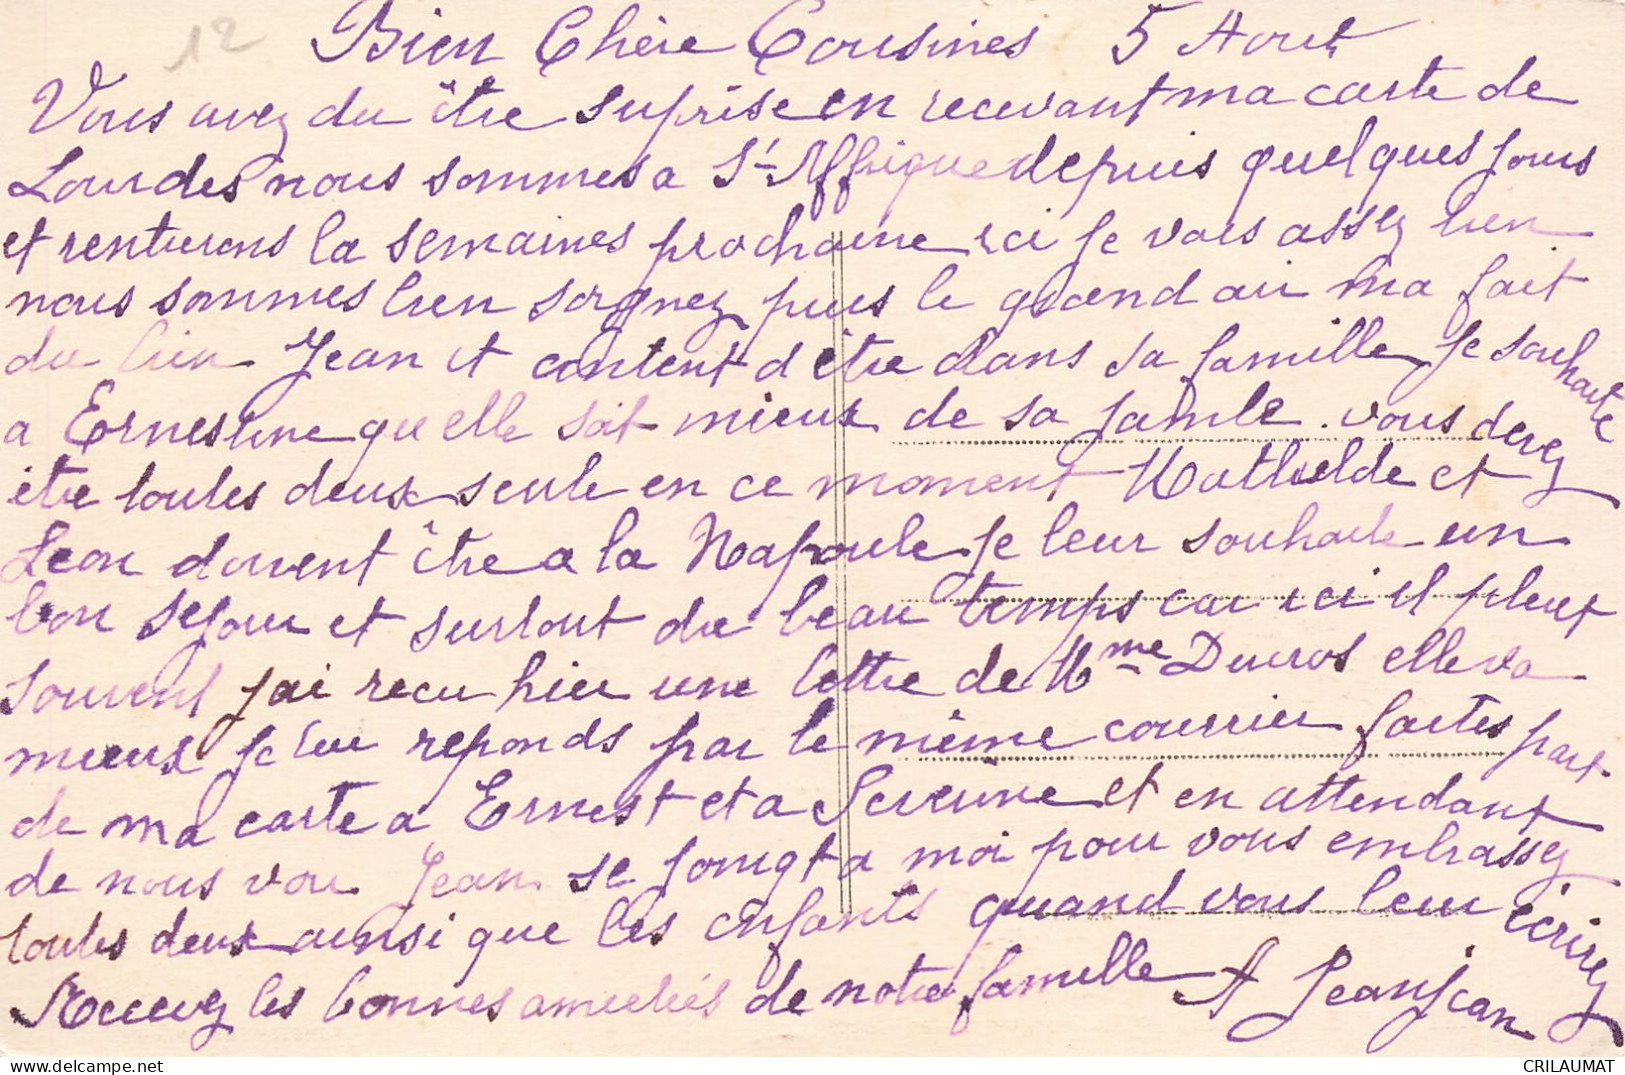 12
Bien Chère Cousines 5 Aout
Vous avez du être suprise en recevant ma carte de
Lourdes nous sommes a St Affrique depuis quelques jours
et rentrerons la semaines prochaine ici je vais assez bien
nous sommes bien soignez puis le grand air ma fait
du bien Jean et content d être dans sa famille je souhaite
a Ernestine qu elle soit mieux de sa jambe. vous devez
être toutes deux seule en ce moment Mathielde et
Leon doivent être a la Napoule je leur souhaite un
bon sejour et surtout du beau temps car ici il pleut
souvent j'ai recu hier une lettre de Mme Ducros elle va
mieux je lui reponds par le même courrier faites part
de ma carte a Ernest et a Severine et en attendant
de nous voir Jean se joingt a moi pour vous embrassez
toutes deux ainsi que les enfants quand vous leur écrirez
Recevez les bonnes amitiés de notre famille A Jeanjean
www.delcampe.net
CRILAUMAT